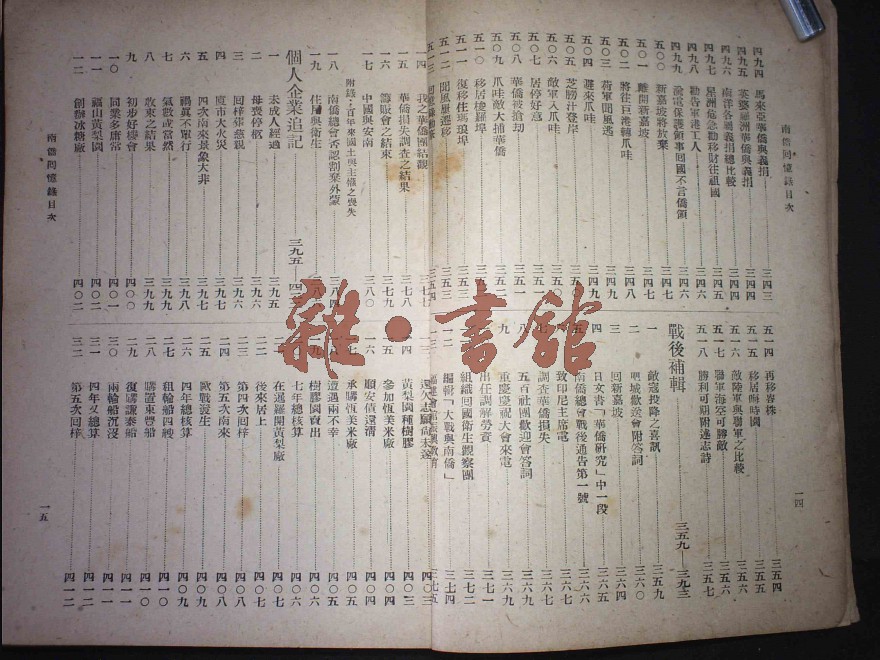 南僑回憶錄目次
一四
四九四 馬來亞華僑與義捐 三四三
四九五 英荷屬洲華僑與義捐 三四四
四九六 南洋各屬義捐總比較 三四四
四九七 星洲危急勸移財往祖國
四九八 勸告軍港工人
四九九 論電保護領事回國不言僑領 三四六
五〇〇 新嘉坡將放棄 三四七
五〇一 離開新嘉坡 三四七
五〇二 將往巨港轉爪哇 三四八
五〇三 荷軍聞風逃
五〇四 避來爪哇 三四九
五〇五 芝朥汁登岸
五〇六 敵軍入爪哇
五〇七 居停好意
五〇八 華僑被搶劫
五〇九 爪哇敵大捕華僑 三五一
五一〇 移居梭羅埠
五一一 復移住瑪琅埠 三五三
五一二 聞風屢遷移 三五三
五一四 再移峇株 三五四
五一五 移居晦時園 三五五
五一六 敵陸軍與聯軍之比較 三五六
五一七 聯軍海空可勝敵 三五六
五一八 勝利可期附述志詩 三五七
戰後補輯 三五九——三九三
一 敵寇投降之喜訊 三五九
二 吧城歡送會附答詞 三六〇
三 回新嘉坡
四 日文書「華僑研究」中一段 三六五
五 南僑總會戰後通告第一號
六 致印尼主席電 三六七
七 調查華僑損失 三六七
五百社團歡迎會答詞
九 重慶慶祝大會來電 三六九
出任調解勞資 三六九
組織回國衛生觀察團 三七二
一二 編輯「大戰與南僑」 三七四
三七五
一四 我之華僑團結觀 三七七
一五 華僑損失調查之結果 三七八
一六 籌賑會之結束 三七九
一七 中國與安南 三八〇
附錄：百年來國土與主權之喪失
一八 南僑總會否認割棄外蒙 三八四
一九 住屋與衛生
個人企業追記 三九五
一 未成人經過 三九五
二 母喪停柩 三九六
三 回梓葬慈親 三九六
四 廈市大火災 三九七
五 四次南來景象大非 三九七
六 禍真不單行 三九八
七 氣數或當然 三九九
八 收束之結果 三九九
九 初步好機會 四〇〇
一〇 同業多庸常 四〇一
一一 福山黃梨園 四〇二
一二 創辦冰糖廠 四〇二
還欠志願尚未達 四〇三
黃梨園種樹膠 四〇三
一五 參加恆美米廠 四〇四
一六 順安債還清 四〇四
承購恆美米廠 四〇五
遭遇兩不幸 四〇五
樹膠園賣出 四〇六
七年總核算 四〇六
在暹羅開黃梨廠 四〇七
二二 後來居上 四〇七
二三 第四次回梓 四〇八
二四 第五次南來 四〇八
二五 歐戰發生 四〇九
二六 四年總核算 四〇九
二七 租輪船四艘 四一〇
二八 購置東豐船 四一〇
二九 復購謙泰船 四一一
三〇 兩輪船沉沒 四一一
三一 四年又總算 四一二
三二 第五次回梓 四一二
南僑回憶錄目次
一五
雜·書館